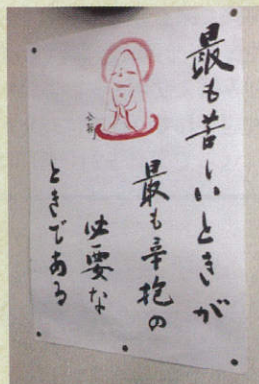 最も苦しいときが
最も辛抱の
必要な
ときである